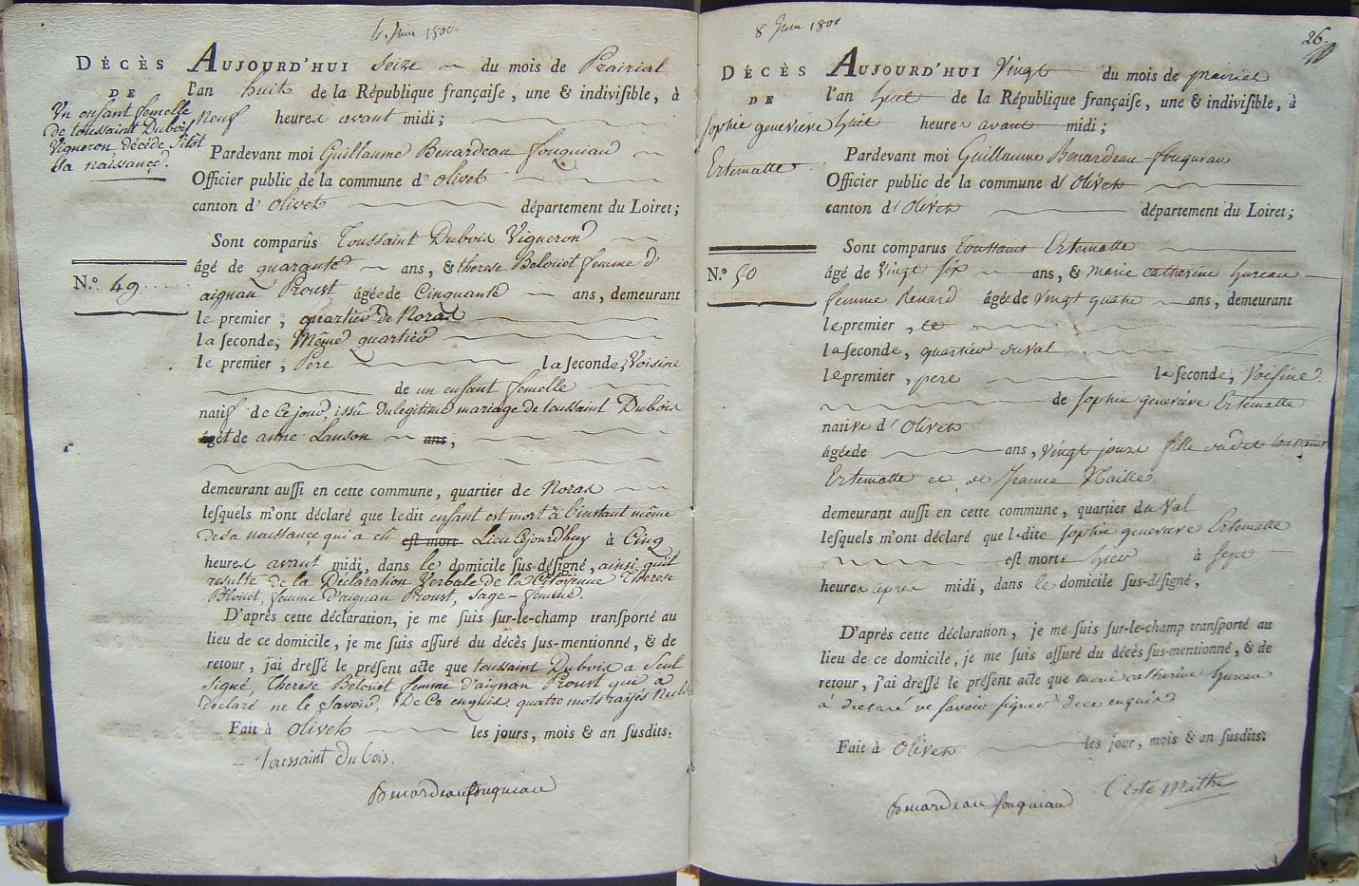 Juin 1800.
DÉCÈS
DE
Un enfant femelle
de toussaint Dubois
Vigneron décédé sitôt
sa naissance
N.º 49
AUJOURD'HUI Seize du mois de Prairial
l'an huit de la République françaiſe, une & indiviſible, à
Neuf heures avant midi ;
Pardevant moi Guillaume Benardeau fouquiau
Officier public de la commune d' olivet
canton d' olivet département du Loiret ;
Sont comparûs Toussaint Dubois Vigneron
âgé de quarante ans, & therese Belouet femme d'
aignan Proust âgée de Cinquante ans, demeurant
le premier, quartier de Noras
la ſeconde, Même quartier
le premier, Pere la ſeconde, Voisine
de un enfant femelle
natif de Cejour, issû du legitime mariage de toussaint Dubois
et de anne Lanson ans,
demeurant auſſi en cette commune, quartier de Noras
leſquels m'ont déclaré que ledit enfant est mort à l'instant même
de sa naissance qui a eû est mort Lieu Cejourd'huy à Cinq
heures avant midi, dans le domicile ſus-déſigné, ainsi qu'il
resulte de la Déclaration Verbale de la Citoyenne Therese
Blouet, femme D'aignan Proust, Sage-femme.
D'après cette déclaration, je me ſuis ſur-le-champ tranſporté au
lieu de ce domicile, je me ſuis aſſuré du décès ſus-mentionné, & de
retour, j'ai dreſſé le préſent acte que toussaint Dubois a Seul
Signé, Therese Belouet femme d'aignan Proust qui a
Déclaré ne le Savoir, De Ce enquis. quatre mots raÿés Nuls
Fait à Olivet les jours, mois & an ſuſdits.
toussaint du bois.
Benardeau fouquiau
8 Juin 1800
26
DÉCÈS
DE
Sophie genevieve
Ertematte
N.º 50
AUJOURD'HUI Vingt du mois de prairial
l'an huit de la République françaiſe, une & indiviſible, à
huit heures avant midi ;
Pardevant moi Guillaume Benardeau fouquiau
Officier public de la commune d' Olivet
canton d' Olivet département du Loiret ;
Sont comparus toussaint Ertematte
âgé de Vingt six ans, & marie catherine hureau
femme Renard âgée de vingt quatre ans, demeurant
le premier, et
la ſeconde, quartier duval
le premier, pere la ſeconde, Voisine
de sophie genevieve Ertematte
native d' Olivet
âgée de ans, Vingt jours fille dudit toussaint
Ertematte et de
demeurant auſſi en cette commune, quartier du Val
leſquels m'ont déclaré que ladite sophie genevieve Ertematte
est morte hier à sept
heures après midi, dans le domicile ſus-déſigné,
D'après cette déclaration, je me ſuis ſur-le-champ tranſporté au
lieu de ce domicile, je me ſuis aſſuré du décès ſus-mentionné, & de
retour, j'ai dreſſé le préſent acte que marie catherine hureau
a déclaré ne savoir signer de ce enquise
Fait à Olivet les jour, mois & an ſuſdits.
Benardeau fouquiau